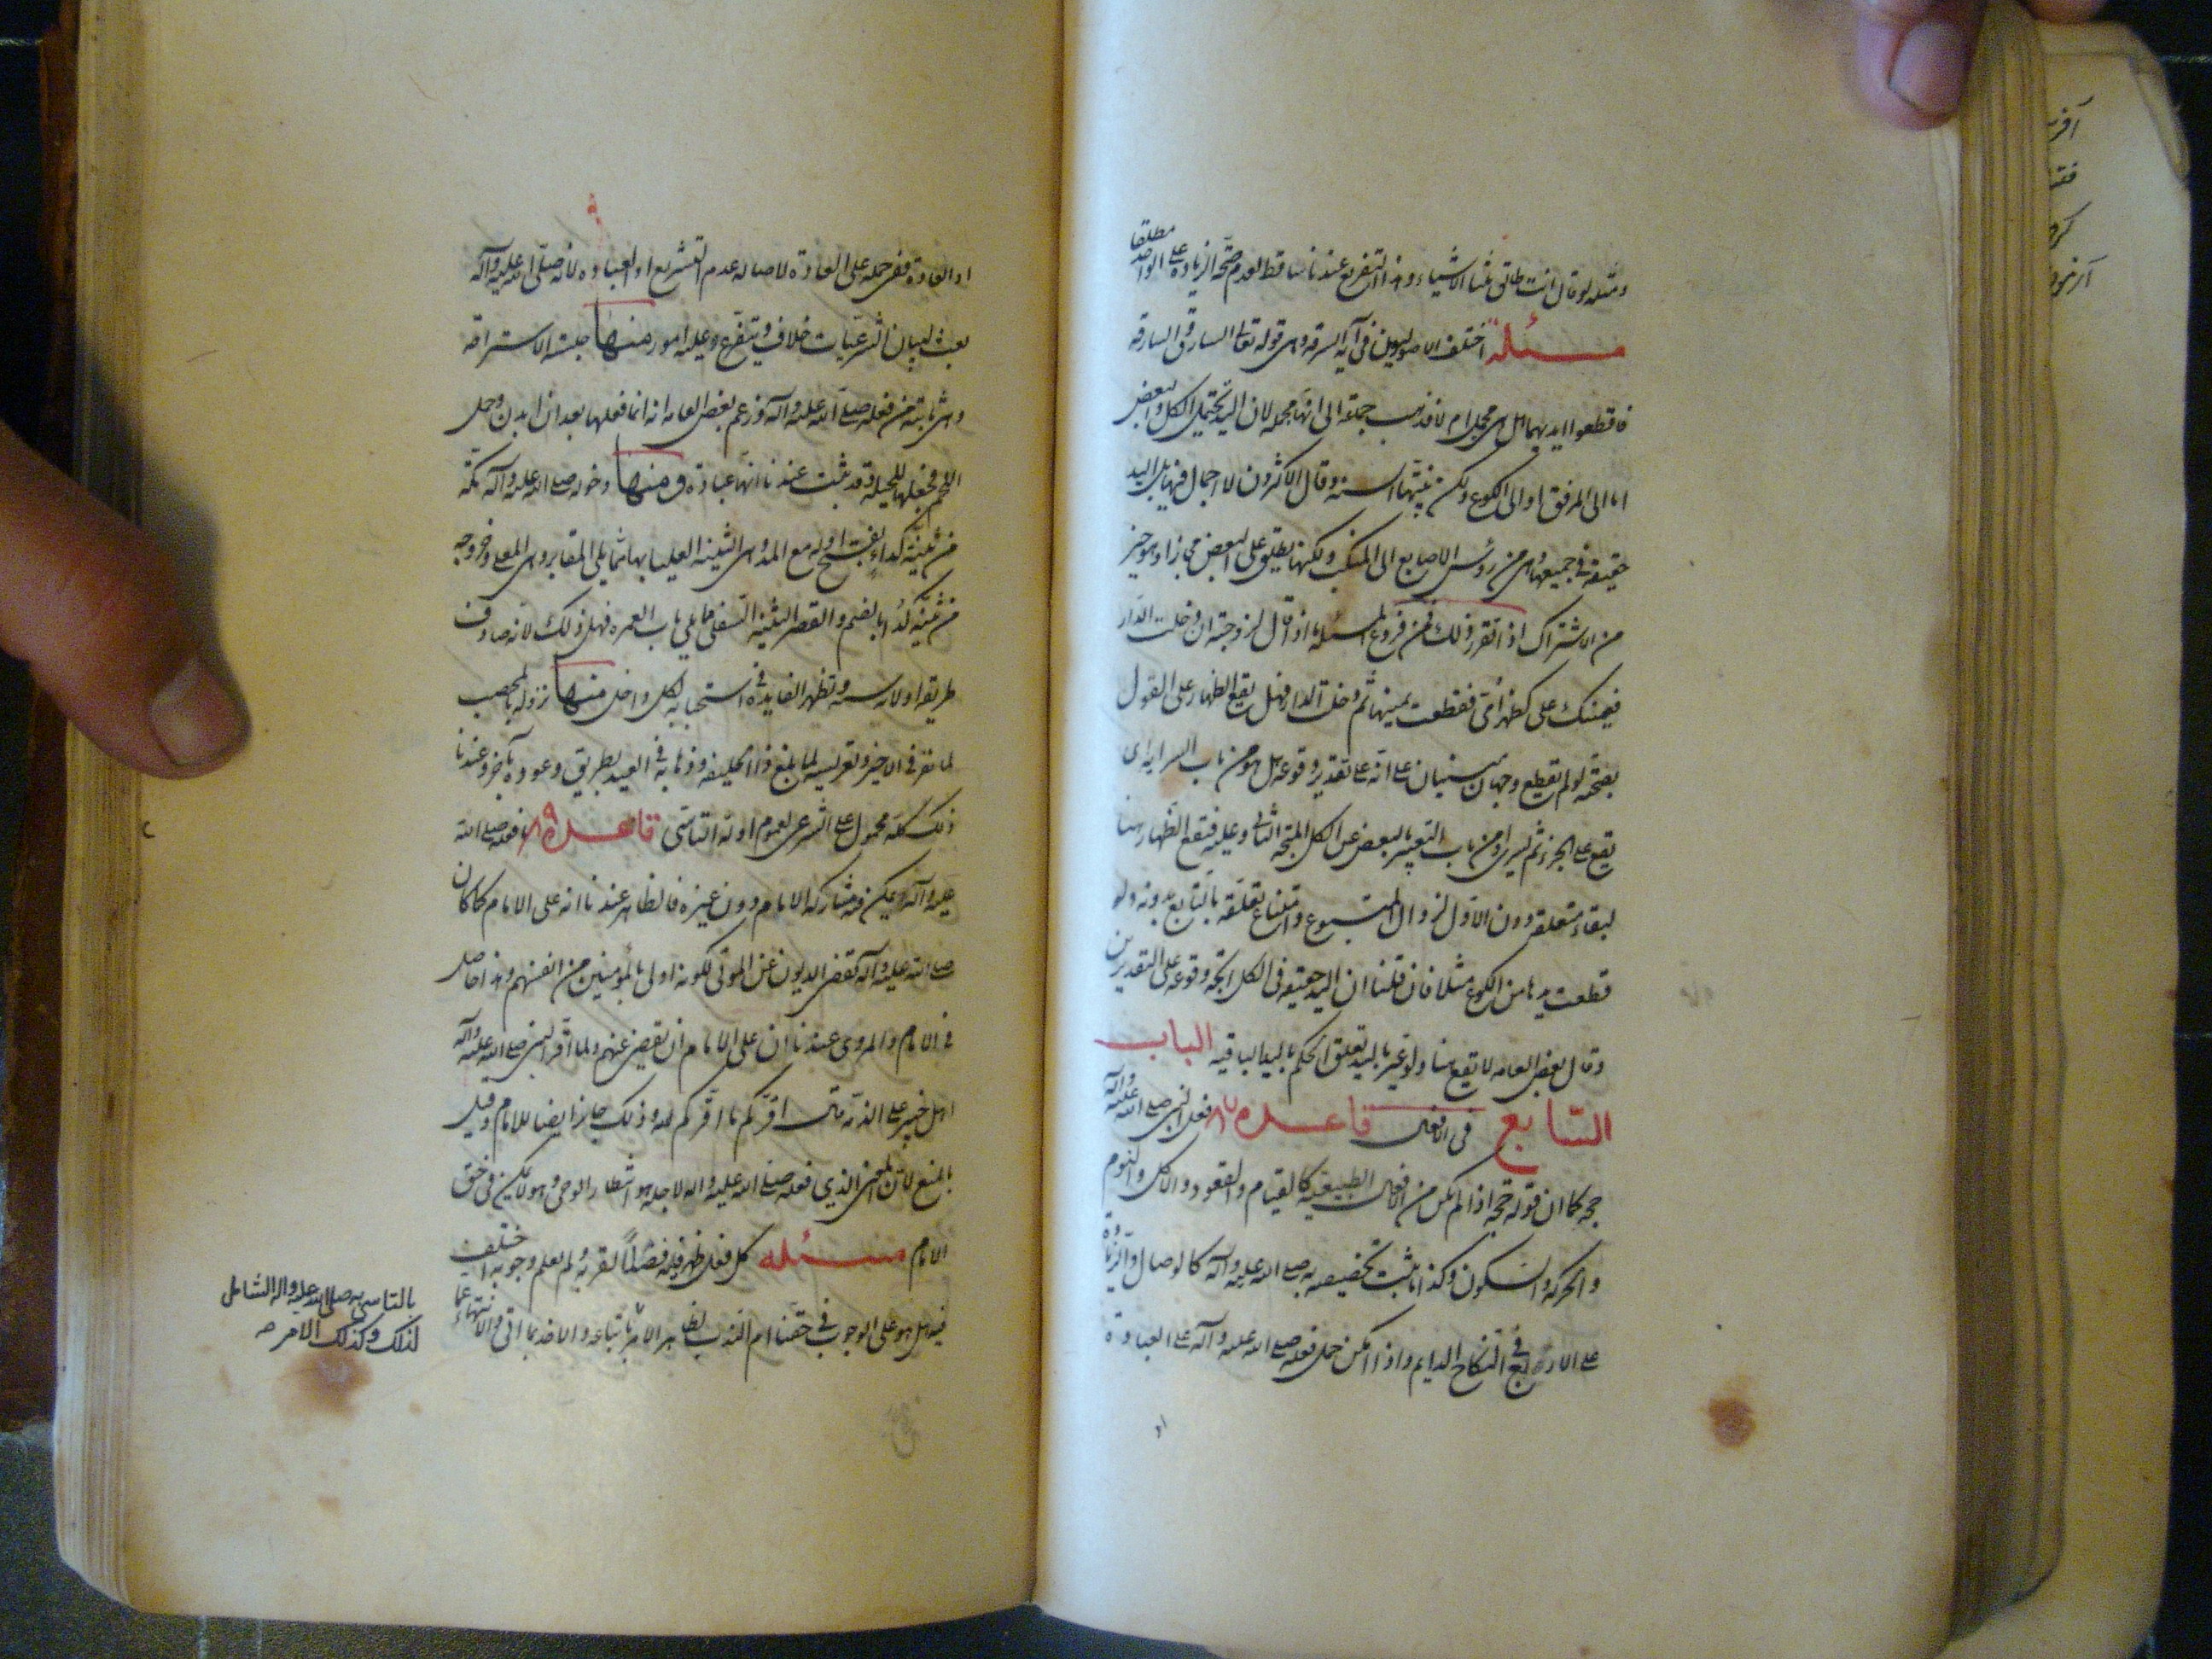 ومثله لو قال انت طالق مثنا الاشياء وهذا التفريع عندنا ساقط لعدم صحة الزيادة على الواحد مطلقا
مسئلة اختلف الاصوليون في آية السرقة وهي قوله تعالى السارق والسارقة
فاقطعوا ايديهما هل هي مجملة ام لا فذهب جملة الى انها مجملة لان اليد تحتمل الكل والبعض
اما الى المرفق او الى الكوع ولكن بينتها السنة وقال الاكثرون لا اجمال فيها بل اليد
حقيقة في جميعها وهي من رؤس الاصابع الى المنكب ولكنها تطلق على البعض مجازا وهو خير
من الاشتراك اذا تقرر ذلك فمن فروع المسئلة ما اذا قال لزوجته ان دخلت الدار
فيمينك علي كظهر امي فقطعت يمينها ثم دخلت الدار فهل يقع الظهار على القول
بصحته لو لم تقطع وجهان مبنيان على انه على تقدير وقوعه هل هو من باب السراية اي
يقع على الجزء ثم يسري او من باب التعبير بالبعض عن الكل المتجه الثاني وعليه فيقع الظهار هنا
لبقاء متعلقه دون الاول لزوال المتبوع وامتناع تعلقه بالتابع بدونه ولو
قطعت يدها من الكوع مثلا فان قلنا ان اليد حقيقة في الكل اتجه وقوعه على التقديرين
وقال بعض العامة لا تقع هنا ولو عبر باليد تعلق الحكم باليد الباقية الباب
السابع في الافعال قاعده ٨٧ فعل النبي صلى الله عليه وآله
حجة كما ان قوله حجة اذا لم يكن من الافعال الطبيعية كالقيام والقعود والاكل والنوم
والحركة والسكون وكذا ما يثبت تخصيصه به صلى الله عليه وآله كالوصال والزيادة
على الاربع في النكاح الدايم واذا امكن حمل فعله صلى الله عليه وآله على العبادة
او
او العادة ففي حمله على العادة لاصالة عدم التشريع او العبادة لانه صلى الله عليه وآله
بعث لبيان الشرعيات خلاف ويتفرع عليه امور منها جلسة الاستراحة
وهي ثابتة من فعله صلى الله عليه وآله وزعم بعض العامة انه انما فعلها بعد ان بدن وحمل
اللحم فجعلها للجبلة وقد ثبت عندنا انها عبادة ومنها دخوله صلى الله عليه وآله مكة
من ثنية كداء بفتح اوله مع المد وهي الثنية العليا بها مما يلي المقابر وهي المعلى وخروجه
من ثنية كدا بالضم والقصر الثنية السفلى مما يلي باب العمرة فهل ذلك لانه صادف
طريقه او لانه سنة وتظهر الفايدة في استحبابه لكل داخل منها نزوله بالمحصب
لما نفر في الاخير وتعريسه لما بلغ ذا الحليفة وذهابه في العيد بطريق وعوده بآخر وعندنا
ذلك كله محمول على الشرعي لعموم ادلة التاسي قاعده ٨٩ ما فعله صلى الله
عليه وآله ويمكن فيه مشاركة الامام دون غيره فالظاهر عندنا انه على الامام كما كان
صلى الله عليه وآله كقضى الديون عن الموتى لكونه اولى بالمؤمنين من انفسهم وهذا حاصل
في الامام والمروي عندنا ان على الامام ان يقضي عنهم ولما اقر النبي صلى الله عليه وآله
اهل خيبر على الذمة قال اقركم ما اقركم الله وذلك جايز ايضا للامام وقيل
بالمنع لان المعنى الذي فعله صلى الله عليه وآله لاجله هو انتظار الوحي وهو لا يمكن في حق
الامام مسئله كل فعل ظهر فيه قصد القربة ولم يعلم وجوبه اختلف
فيه هل هو على الوجوب في حقنا ام الندب لظاهر الامر باتباعه والاخذ بما اتى والانتهاء عما
بالتاسي به صلى الله عليه واله الشامل
لذلك وكذلك الامر ص